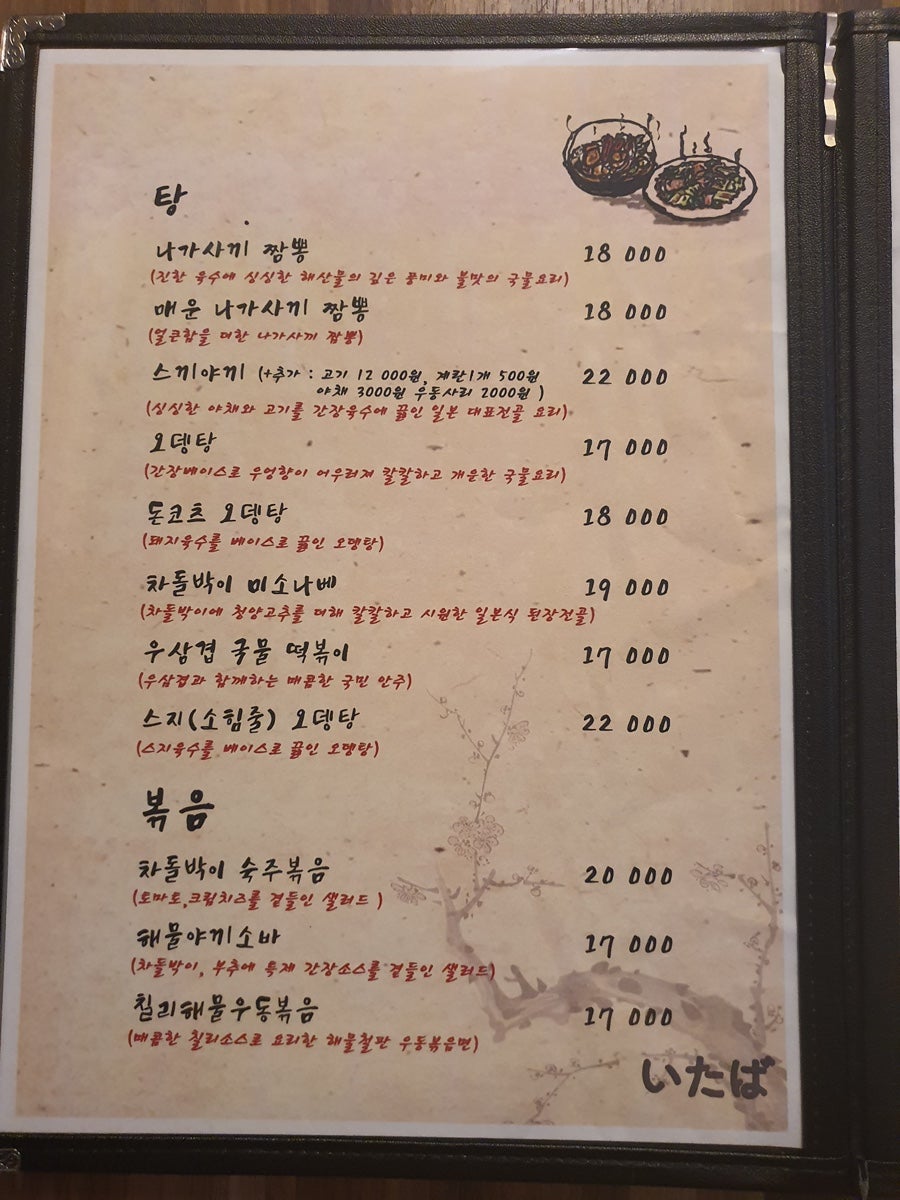 탕
나가사끼 짬뽕 18 000
(진한 육수에 싱싱한 해산물의 깊은 풍미와 불맛의 국물요리)
매운 나가사끼 짬뽕 18 000
(얼큰함을 더한 나가사끼 짬뽕)
스끼야끼 (+추가 : 고기 12 000원, 계란1개 500원 22 000
야채 3000원 우동사리 2000원 )
(싱싱한 야채와 고기를 간장육수에 끓인 일본 대표전골 요리)
오뎅탕 17 000
(간장베이스로 우엉향이 어우러져 칼칼하고 개운한 국물요리)
돈코츠 오뎅탕 18 000
(돼지육수를 베이스로 끓인 오뎅탕)
차돌박이 미소나베 19 000
(차돌박이에 청양고추를 더해 칼칼하고 시원한 일본식 된장전골)
우삼겹 국물 떡볶이 17 000
(우삼겹과 함께하는 매콤한 국민 안주)
스지(소힘줄) 오뎅탕 22 000
(스지육수를 베이스로 끓인 오뎅탕)
볶음
차돌박이 숙주볶음 20 000
(토마토,크림치즈를 곁들인 샐러드 )
해물야끼소바 17 000
(차돌박이, 부추에 특제 간장소스를 곁들인 샐러드)
칠리해물우동볶음 17 000
(매콤한 칠리소스로 요리한 해물철판 우동볶음면)
いたば